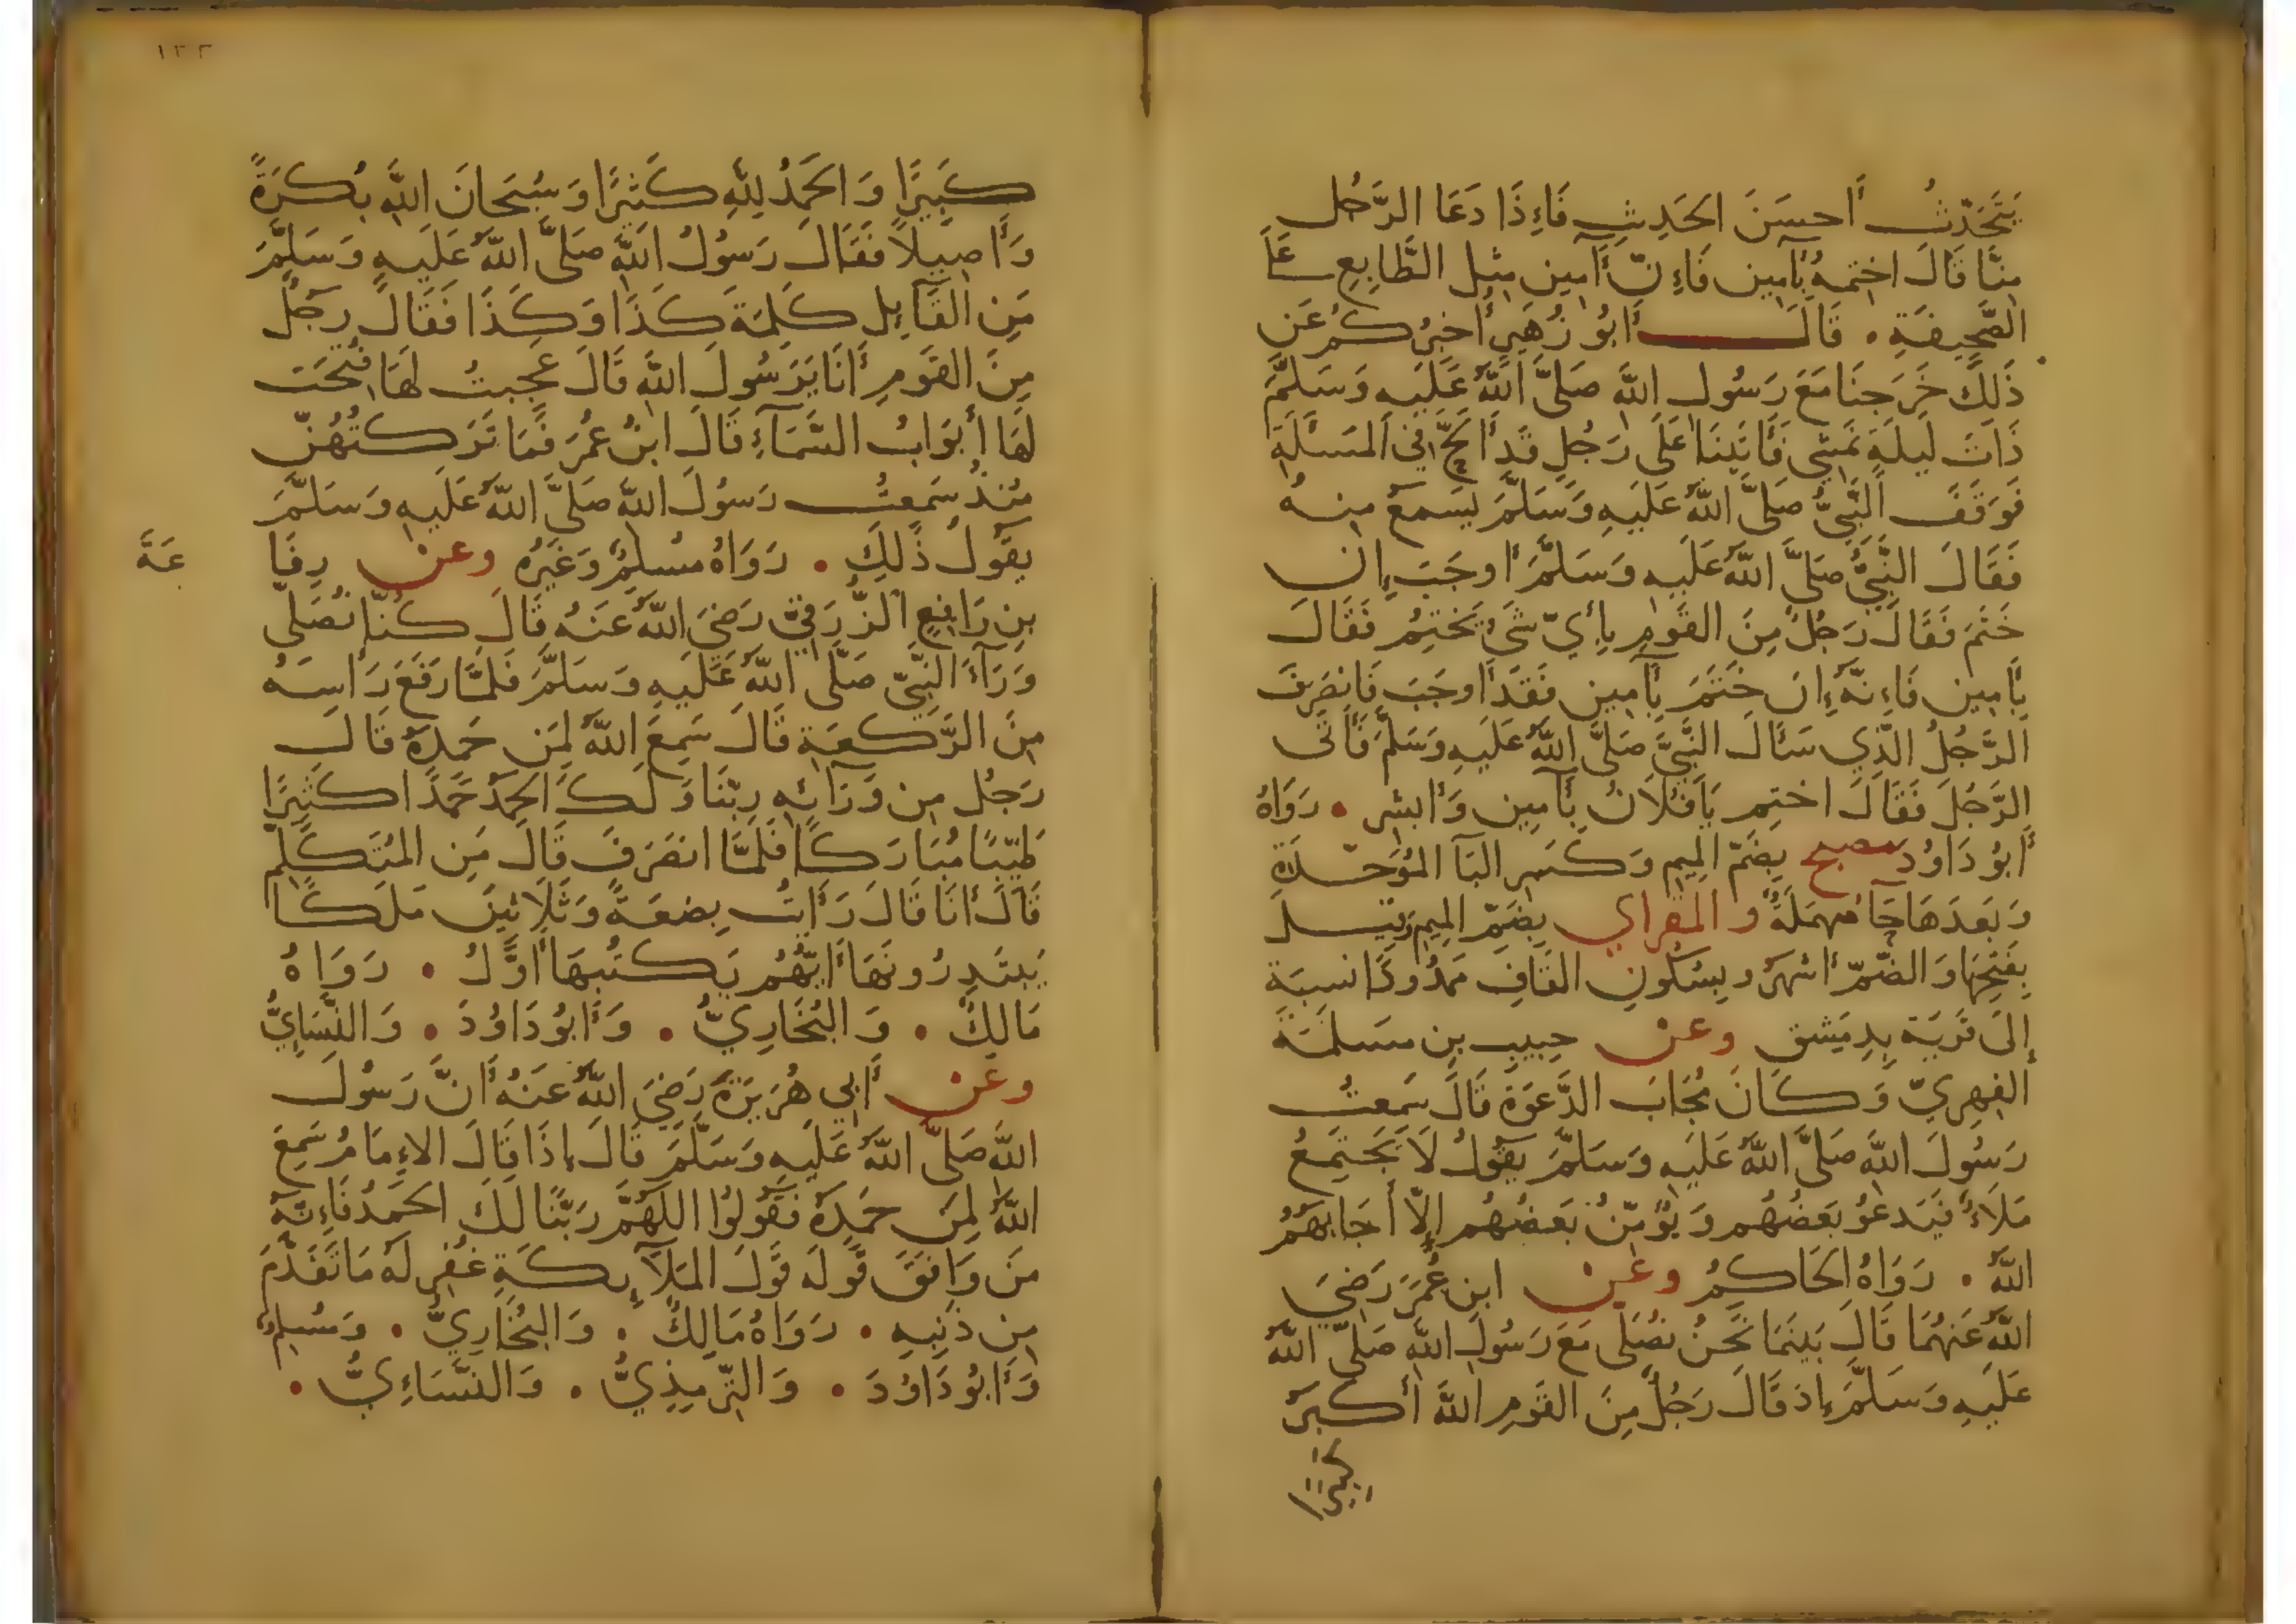 يَتَحَدَّثُ أَحسَنَ الحَدِيثِ فَإِذَا دَعَا الرَّجُل
مِنَّا قَالَ اختِمهُ بِآمِين فَإِنَّ آمِين مِثِل الطَّابِعِ عَلَى
الصَّحِيفَةِ • قَالَ أَبُو زُهَيرٍ أُخبِرُكُم عَن
ذَلِكَ خَرَجنَا مَعَ رَسُول اللَّهِ صَلَّى اللَّهُ عَلَيهِ وَسَلَّمَ
ذَاتَ لَيلَةٍ نَمشِي فَأَتَينَا عَلَى رَجُلٍ قَد أَلَحَّ فِي المَسئَلَةِ
فَوَقَفَ النَّبِيُّ صَلَّى اللَّهُ عَلَيهِ وَسَلَّمَ يَسمَعُ مِنهُ
فَقَالَ النَّبِيُّ صَلَّى اللَّهُ عَلَيهِ وَسَلَّمَ أَوجَبَ إِن
خَتَمَ فَقَالَ رَجُلٌ مِنَ القَومِ بِأَيِّ شَيءٍ يَختِمُ فَقَالَ
بِآمِين فَإِنَّهُ إِن خَتَمَ بِآمِين فَقَد أَوجَبَ فَانصَرَفَ
الرَّجُلُ الَّذِي سَئَالَ النَّبِيَّ صَلَّى اللَّهُ عَلَيهِ وَسَلَّمَ فَأَتَى
الرَّجُلَ فَقَالَ اختِم يَافُلَانُ بِآمِين وَأَبشِر • رَوَاهُ
أَبُو دَاوُدَ مصبح بِضَمِّ المِيمِ وَكَسرِ البَآ المُوَحَّدَةِ
وَبَعدَهَا حَآ مُهمَلَةٌ والمقراي بِضَمِّ المِيمِ وَقِيلَ
بِفَتحِهَا وَالضَّمُّ أَشهَرُ وبِسُكُونِ القَافِ مَمدُودًا نسبَة
إِلَى قَريَة بِدِمَشق وعن حبِيبِ بنِ مَسلَمَةَ
الفِهرِيِّ وَكَانَ مُجَابَ الدَّعوَةِ قَالَ سَمِعتُ
رَسُولَ اللَّهِ صَلَّى اللَّهُ عَلَيهِ وَسَلَّمَ يَقُولُ لَا يَجتَمِعُ
مَلَاءٌ فَيَدعُو بَعضُهُم وَيُؤَمِّنُ بَعضُهُم إِلَّا أَجَابَهُمُ
اللَّهُ • رَوَاهُ الحَاكِمُ وعن ابنِ عُمَرَ رَضِيَ
اللَّهُ عَنهُمَا قَالَ بَينَمَا نَحنُ نُصَلِّى مَعَ رَسُولِ اللَّهِ صَلَّى اللَّهُ
عَلَيهِ وَسَلَّمَ إِذ قَالَ رَجُلٌ مِنَ القَومِ اللَّهُ أَكبَرُ
كَبِيرًا
١٢٢
كَبِيرًا وَالحَمدُ لِلَّهِ كَثِيرًا وَسُبحَانَ اللَّهِ بُكرَةً
وَأَصِيلًا فَقَالَ رَسُولُ اللَّهِ صَلَّى اللَّهُ عَلَيهِ وَسَلَّمَ
مَنِ القَآئِل كَلِمَةَ كَذَا وَكَذَا فَقَالَ رَجُلٌ
مِنَ القَومِ أَنَا يَرَسُولَ اللَّهِ قَالَ عَجِبتُ لَهَا فُتِحَت
لَهَا أَبوَابُ السَّمَآءِ قَالَ ابنُ عُمَرَ فَمَا تَرَكتُهُنَّ
مُنذُ سَمِعتُ رَسُولَ اللَّهِ صَلَّى اللَّهُ عَلَيهِ وَسَلَّمَ
يَقُولُ ذَلِكَ • رَوَاهُ مُسلِمٌ وَغَيرُهُ وعن رِفَا
عَةَ
بنِ رَافِعٍ الزُّرَقِيِّ رَضِيَ اللَّهُ عَنهُ قَالَ كُنَّا نُصَلِّى
وَرَآءَ النَّبِيِّ صَلَّى اللَّهُ عَلَيهِ وَسَلَّمَ فَلَمَّا رَفَعَ رَاسَهُ
مِنَ الرَّكعَةِ قَالَ سَمِعَ اللَّهُ لِمَن حَمِدَهُ قَالَ
رَجُل مِن وَرَائِهِ رَبَّنَا وَلَكَ الحَمدُ حَمدًا كَثِيرًا
طَيِّبًا مُبَارَكًا فَلَمَّا انصَرَفَ قَالَ مَنِ المُتَكَلِّم
قَالَ أَنَا قَالَ رَأَيتُ بِضعَةً وَثَلَاثِينَ مَلَكًا
يَبتَدِرُونَهَا أَيُّهُم يَكتُبهَا أَوَّلُ • رَوَاهُ
مَالِكٌ • وَالبُخَارِيُّ • وَأَبُو دَاوُدَ • وَالنَّسَايُّ
وعن أَبِي هُرَيرَةَ رَضِيَ اللَّهُ عَنهُ أَنَّ رَسُولَ
اللَّهِ صَلَّى اللَّهُ عَلَيهِ وَسَلَّمَ قَالَ إِذَا قَالَ الإِمَامُ سَمِعَ
اللَّهُ لِمَن حَمِدَهُ فَقُولُوا اللَّهُمَّ رَبَّنَا لَكَ الحَمدُ فَإِنَّهُ
مَن وَافَقَ قَولَه قَولَ المَلَآئِكَةِ غُفِرَ لَهُ مَا تَقَدَّمَ
مِن ذَنبِهِ • رَوَاهُ مَالِكٌ • وَالبُخَارِيُّ • وَمُسلِمٌ
وَأَبُو دَاوُدَ • وَالتِّرمِذِيُّ • وَالنَّسَاءِيُّ •